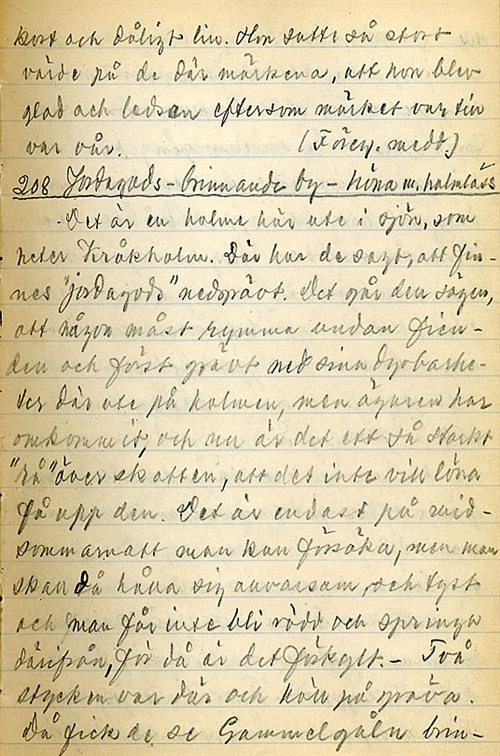 kort och dåligt liv. Hon satte så stort
värde på de där märkena, att hon blev
glad och ledsen eftersom märket var
var vår. (Föreg. medd.)
208 Jordagods - brinnande by - höna m. halmlass
Det är en holme här ute i sjön, som
heter Kråkholm. Där har de sagt, att fin-
nes "jordagods" nedgrävt. Det går den sägen,
att någon måst rymma undan fien-
den och först grävt ned sina dyrbarhe-
ter där ute på holmen, men ägaren har
omkommit, och nu är det ett så starkt
"rå" över skatten, att det inte vill löna
få upp den. Det är endast på mid-
sommarnatt man kan försöka, men man
skall då hålla sig allvarsam, och tyst
och man får inte bli rädd och springa
därifrån, för då är det förkylt. - Två
stycken var där och höll på gräva.
Då fick de se Gammelgåln brin-